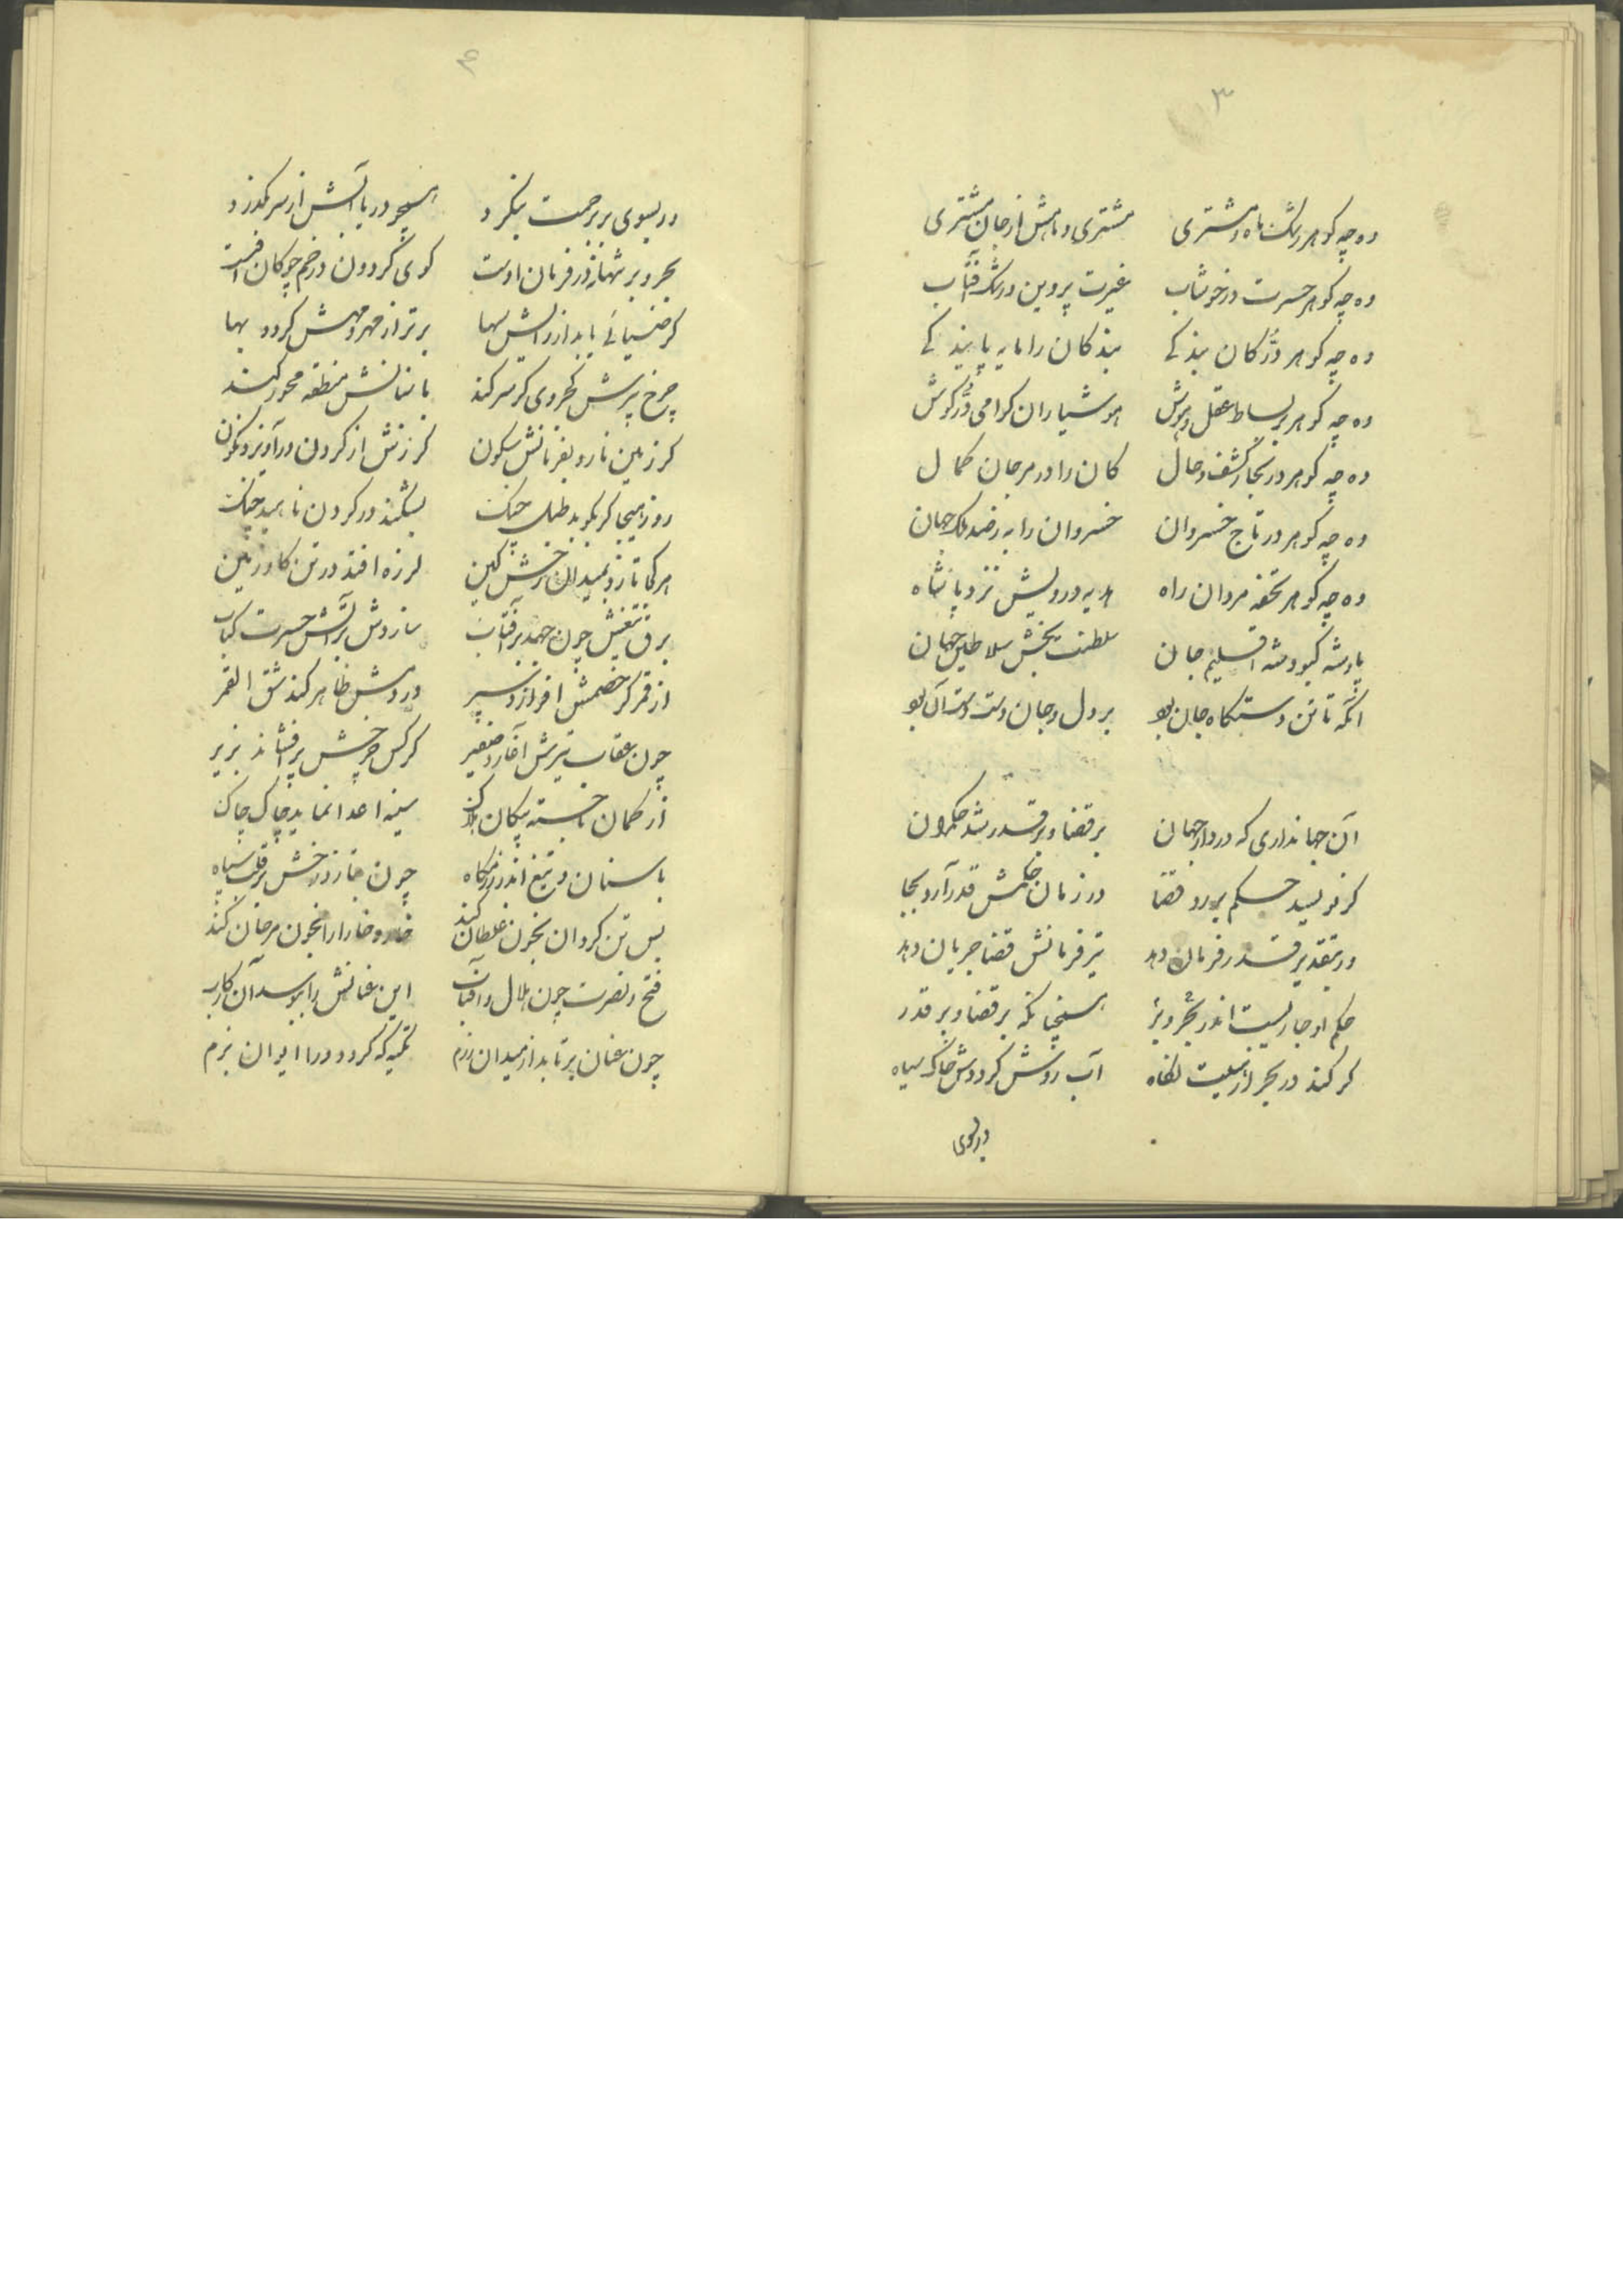 ۳
وه چه کوهر رشک ماه و مشتری مشتری و ماهش از جان مشتری
وه چه کوهر حسرت در خوشاب غیرت پروین و رشک آفتاب
وه چه کوهر در کان بندکے بندکان را مایه پایندکے
وه چه کوهر بر بساط عقل و هوش هوشیاران کرامی در کوش
وه چه کوهر در بحار کشف و حال کان را در مرجان کمال
وه چه کوهر در تاج خسروان خسروان را به ز صد ملک جهان
وه چه کوهر تحفه مردان راه هدیه درویش نزد پادشاه
پادشه کبود شه اقلیم جان سلطنت بخش سلاطین جهان
آنکه تا تن دستکاه جان بود بر دل و جان دست دست آن بود
آن جهانداری که در دار جهان بر قضا و بر قدر شد حکمران
کر نویسد حکم بر رد قضا در زمان حکمش قدر آرد بجا
ور بتقدیر قدر فرمان دهد تیر فرمانش قضا جریان دهد
حکم او جاریست اندر بحر و بر همچنانکه بر قضا و بر قدر
کر کند در بحر از هیبت نکاه آب روشن کرددش خاک سیاه
ور بسوی
۴
ور بسوی بر برحمت بنکرد همچو دریا آبش از سر بکذرد
بحر و بر تنها نه در فرمان اوست کوی کردون در خم چوکان اوست
کر ضیائے یابد از رایش سها برتر از مهر و مهش کردد بها
چرخ پیرش کجروی کر سر کند با سنانش منطقه محور کند
کر زمین نارد بفرمانش سکون کرزش از کردون درآویزد نکون
روز هیجا کر بکوبد طبل جنک بشکند در کردون ناهید چنک
هر کجا تازد بمیدان رخش کین لرزه افتد در تن کاو زمین
برق تیغش چون جهد بر آفتاب سازدش بر آتش حسرت کباب
از قمر کر خصمش افرازد سپر در دمش ظاهر کند شق القمر
چون عقاب تیرش آغازد صفیر کرکس چرخش پر فشاند بزیر
از کمان ناجسته پیکان سینه اعدا نماید چاک چاک
با سنان و تیغ اندر رزمکاه چون بتازد رخش بر قلب سپاه
بس تن کردان بخون غلطان کند خار و خارا را بخون مرجان کند
فتح و نصرت چون هلال و آفتاب این عنانش را ببوسد آن رکاب
چون عنان برتابد از میدان رزم تکیه که کردد ورا ایوان بزم